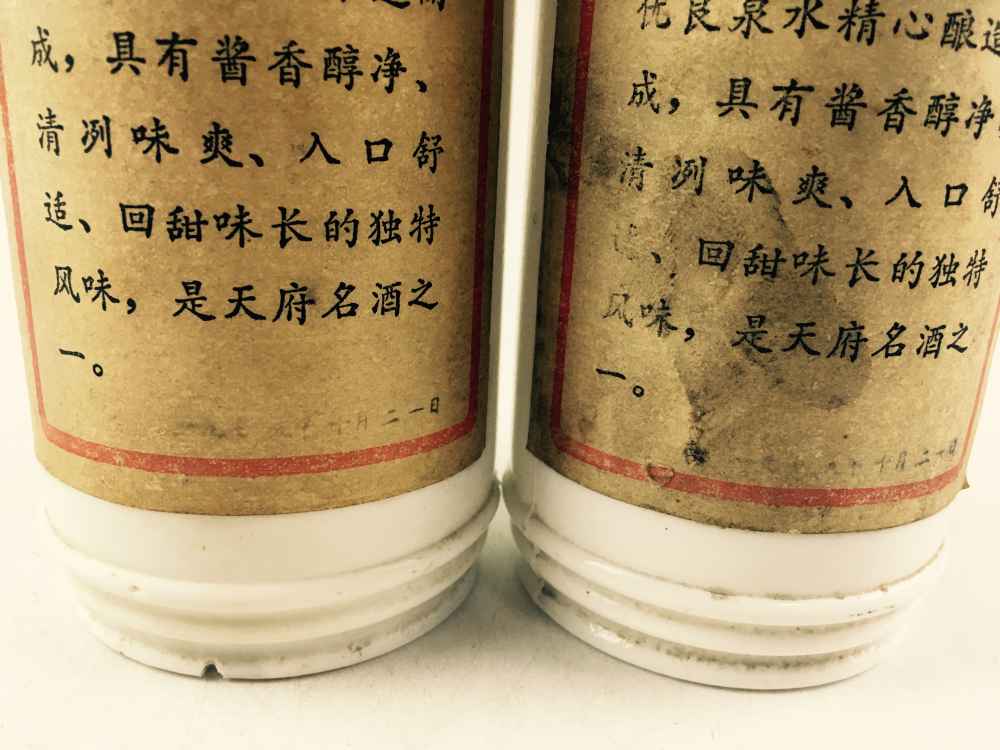 成，具有酱香醇净、
清冽味爽、入口舒
适、回甜味长的独特
风味，是天府名酒之
一。
十月二十一日
优良泉水精心酿造
成，具有酱香醇净
清冽味爽、入口舒
适、回甜味长的独特
风味，是天府名酒之
一。
十月二十一日